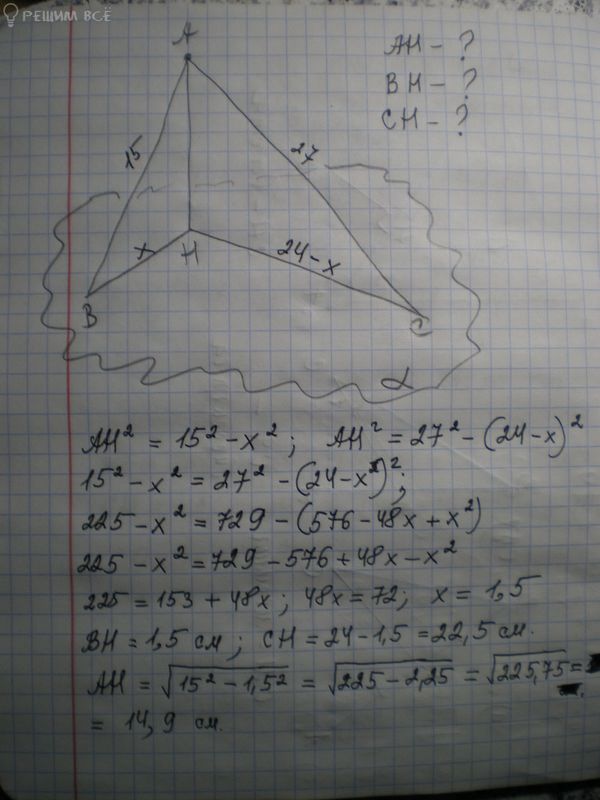 РЕШИМ ВСЁ
A
AH - ?
BH - ?
CH - ?
15
27
x
H
24-x
B
C
α
AH² = 15² - x² ; AH² = 27² - (24-x)²
15² - x² = 27² - (24-x)² ;
225 - x² = 729 - (576 - 48x + x²)
225 - x² = 729 - 576 + 48x - x²
225 = 153 + 48x ; 48x = 72 ; x = 1,5
BH = 1,5 см ; CH = 24 - 1,5 = 22,5 см.
AH = √15² - 1,5² = √225 - 2,25 = √225,75 =
= 14,9 см.